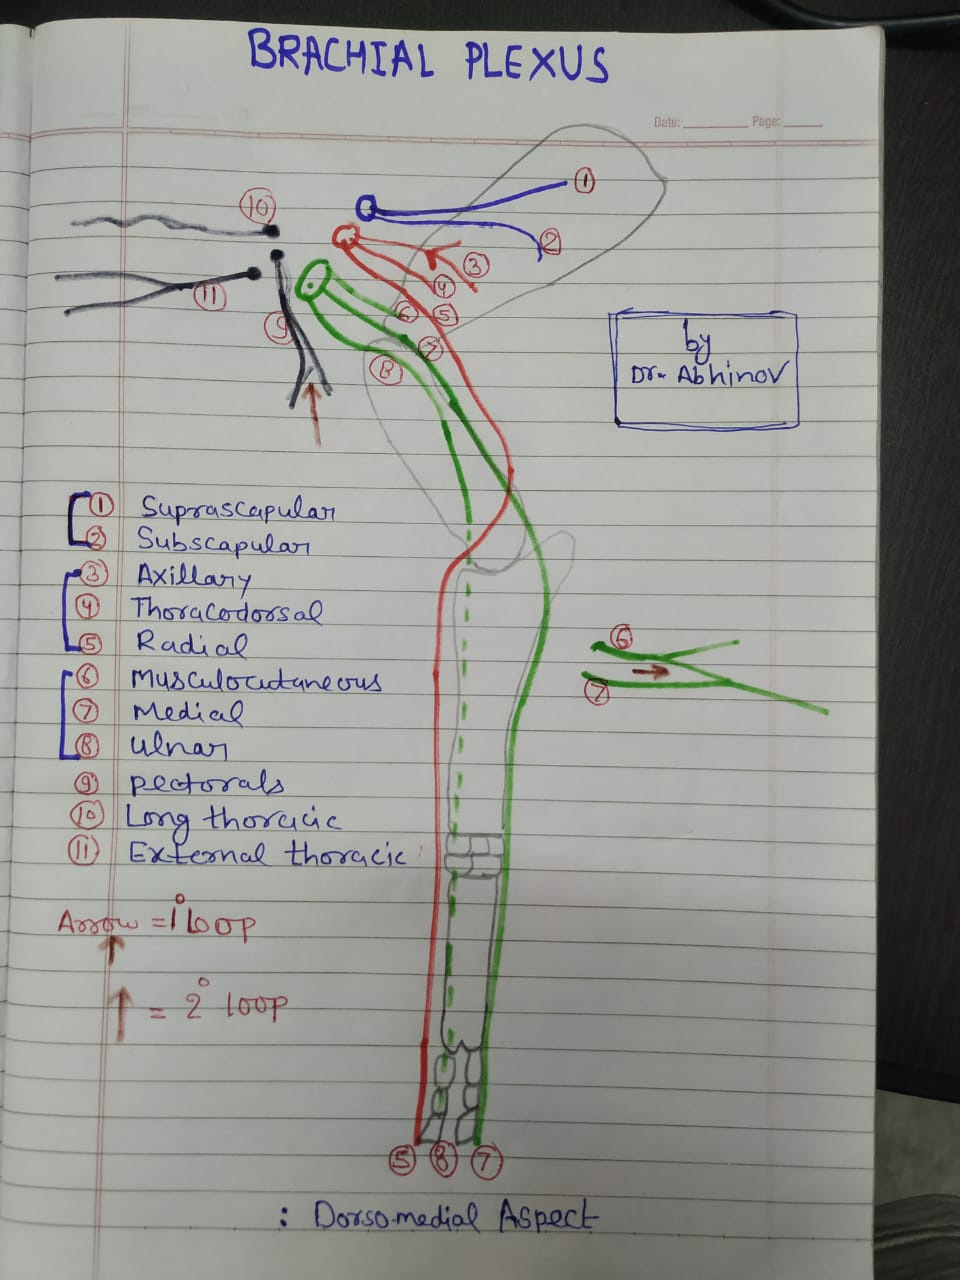 BRACHIAL PLEXUS
Date: ________ Page: _____
10
1
2
3
4
11
6
5
9
7
8
by
Dr. Abhinov
1 Suprascapular
2 Subscapular
3 Axillary
4 Thoracodorsal
5 Radial
6 Musculocutaneous
7 Medial
8 Ulnar
9 pectorals
10 Long thoracic
11 External thoracic
6
7
Arrow = 1° loop
↑ = 2° loop
5 8 7
: Dorsomedial Aspect